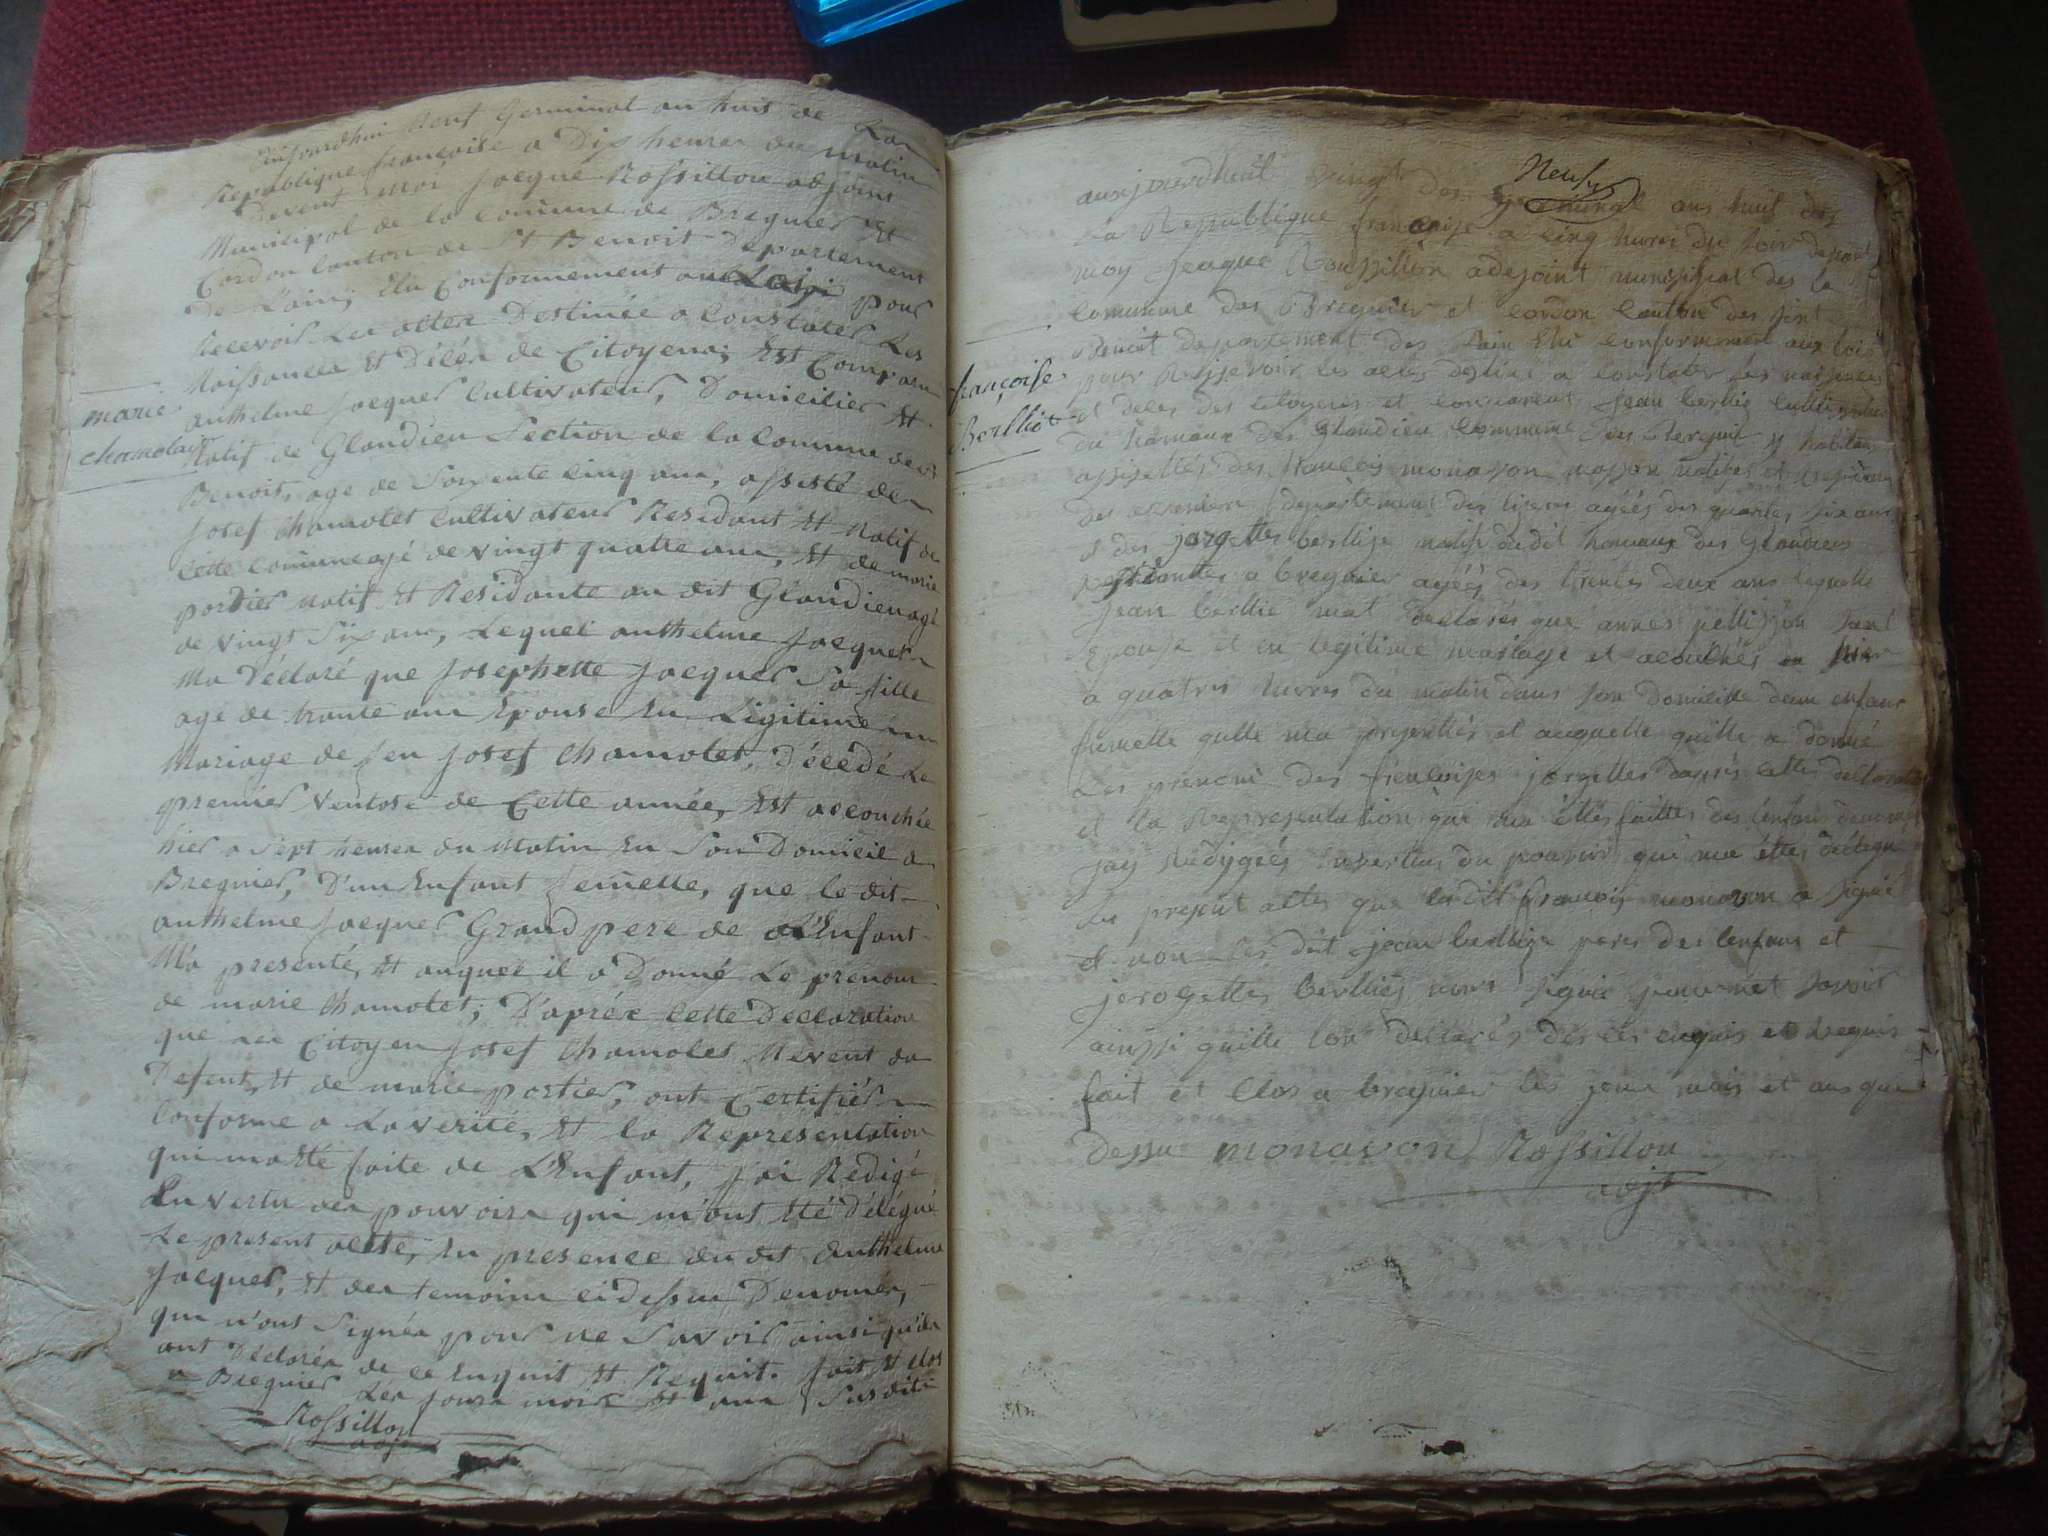 aujourdhui Neuf Germinal an huit de La
Republique françoise a Dix heures du matin
Devent Moi Jacque Rossillon adjoint
Municipal de la Commune de Bregnier Et
Cordon Canton de St Benoit Departement
De L'ain, Elu Conformement aux Loix pour
Recevoir Les actes Destinée a Constater Les
Naissances Et Décés de Citoyens; Est Comparu
anthelme Jacquer Cultivateur, Domicilier Et
Natif de Glandieu Section de la Commune de St
marie
chamolet
Benoit, age de Soixente Cinq ans, assisté de
Josef Chamolet Cultivateur Residant Et Natif de
Cette Commune agé de vingt quatre ans, Et de marie
portier Natif Et Residante au dit Glandieu agé
de vingt Six ans, Lequel anthelme Jacquer
Ma Déclaré que Josephette Jacquer Sa fille
agé de trante ans Epouse En Légitime
Mariage de feu Josef Chamolet, Décedé Le
premier Ventose de Cette année, Est accouchée
hier a Sept heures du Matin En Son Domicil a
Bregnier, D'un Enfant femelle, que le dit
anthelme Jacquer Grand pere de L'Enfant
M'a presenté, Et auquel il a Donné Le prenom
de marie Chamolet; D'aprés Cette Declaration
que les Citoyen Josef Chamolet Nevent du
Defent, Et de marie portier, ont Certifiér
Conforme a La verité, Et la Representation
qui ma Eté faite de L'Enfant, J'ai Redigé
En vertu des pouvoirs qui m'ont Eté Délégué
Le present acte, En presence du dit Anthelme
Jacquer, Et des temoins ci dessus Denomés,
qui n'ont Signés pour ne Savoir ainsi qu'ils
ont Déclarés de ce Enquit Et Requit. fait Et Clos
a Bregnier Les Jours mois Et ans Susdits
Rossillon
adjt
Neuf
auxjourdhuit vingt des germinal ans huit des
La Republique francaise a cinq hures du soir
moy Jeaque Roussillion adejoint munisipal des la
Commune des Bregnier et Cordon Canton des sint
Benoit departement des Lain Elu conformement aux lois
pour les actes destiné a Constater les
françoise
Berthet
et deces des Citoyens et Jean berllie
du hamaux des Glandieu Commune des y habitan
des francois monavon
departement des agéés des quarte six ans
et des jorgettes berllie natife dudit hamaux des Glandieu
a bregnier agéés des trentes deux ans lequelle
Jean berllie mat declarés que annes pellisson sont
Epouse et en legitime mariage et acouchés hier
a quatres hurres du matin dans son domicille deun enfant
fumelle quille ma presentés et auquelle quille a donné
Les prenoms des frencoises jorgettes daprés cettes declaration
et la Representation qui ma éttés faittes des lenfant
jay Redygéés Envertus du pouvoirs qui ma éttés délégu
Le present attes que ledit francois monavon a signé
et non Les dit jean berllie peres des lenfans et
jerogettes berlliés nont signé pour net savoir
ainssi quille lon declarés des ces enquis et Requis
fait et Clos a bregnier les jour mois et ans que
dessus monavon Rossillon
adjt